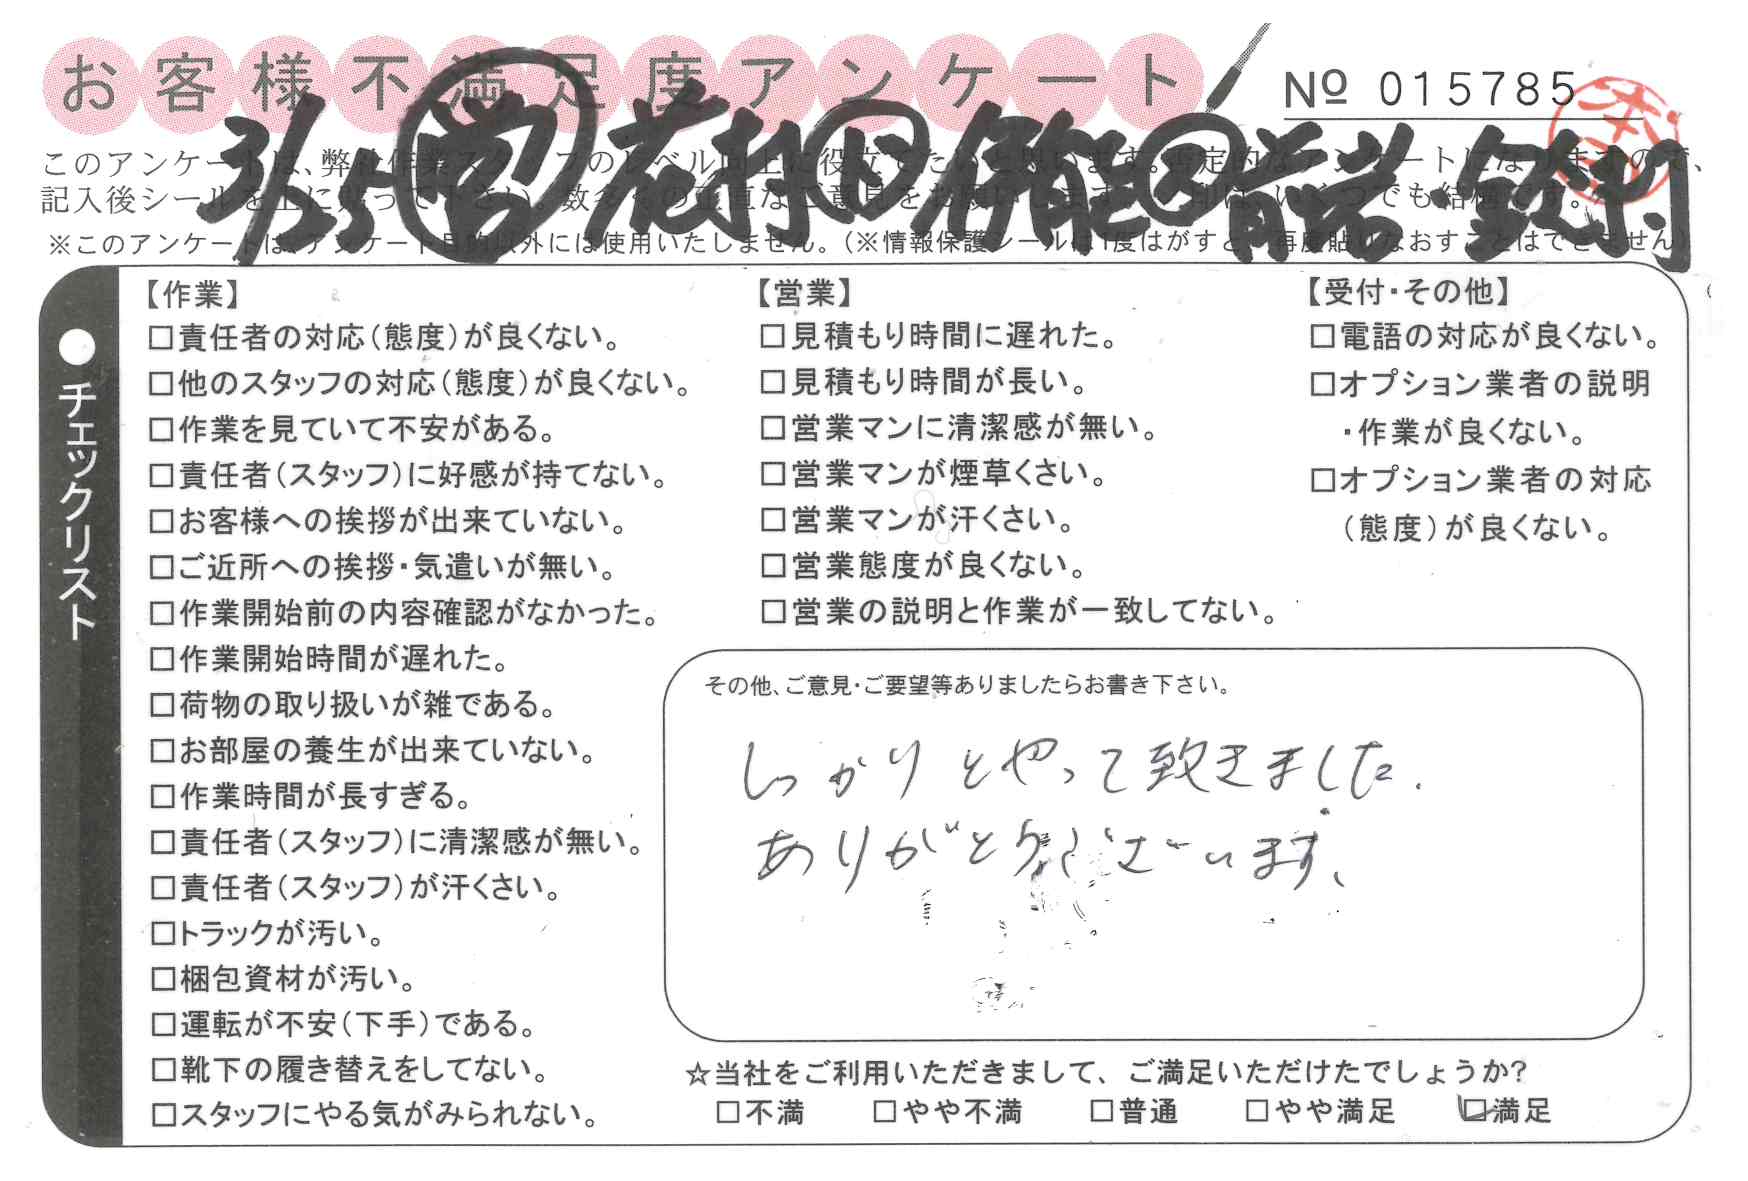 お客様不満足度アンケート
№ 015785
3/25 営 花村 伊能 前岩 鈴村
このアンケートは、弊社作業スタッフのレベル向上に役立てたいと思います。否定的なアンケートになりますので、
記入後シールを上に貼って下さい。数多くの正直なご意見をお願いします。
※このアンケートは、アンケート目的以外には使用いたしません。（※情報保護シールは1度はがすと、再度貼りなおすことはできません）
●チェックリスト
【作業】
□責任者の対応（態度）が良くない。
□他のスタッフの対応（態度）が良くない。
□作業を見ていて不安がある。
□責任者（スタッフ）に好感が持てない。
□お客様への挨拶が出来ていない。
□ご近所への挨拶・気遣いが無い。
□作業開始前の内容確認がなかった。
□作業開始時間が遅れた。
□荷物の取り扱いが雑である。
□お部屋の養生が出来ていない。
□作業時間が長すぎる。
□責任者（スタッフ）に清潔感が無い。
□責任者（スタッフ）が汗くさい。
□トラックが汚い。
□梱包資材が汚い。
□運転が不安（下手）である。
□靴下の履き替えをしてない。
□スタッフにやる気がみられない。
【営業】
□見積もり時間に遅れた。
□見積もり時間が長い。
□営業マンに清潔感が無い。
□営業マンが煙草くさい。
□営業マンが汗くさい。
□営業態度が良くない。
□営業の説明と作業が一致してない。
【受付・その他】
□電話の対応が良くない。
□オプション業者の説明
・作業が良くない。
□オプション業者の対応
（態度）が良くない。
その他、ご意見・ご要望等ありましたらお書き下さい。
しっかりとやって致きました.
ありがとうございます、
☆当社をご利用いただきまして、ご満足いただけたでしょうか?
□不満 □やや不満 □普通 □やや満足 □満足